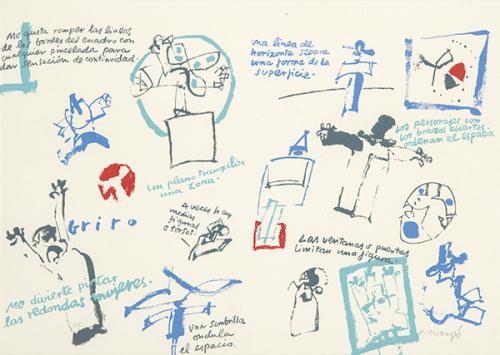 Me gusta romper las lineas
de los bordes del cuadro con
cualquier pincelada para
dar sensación de continuidad.
una linea de
horizonte separa
una forma de la
superficie.
Los personajes con
los brazos abiertos
ordenan el espacio.
un plano tranquiliza
una zona.
Griro
A veces hay
medias
figuras
o torsos.
Las ventanas o puertas
limitan una figura.
Me divierte pintar
las redondas mujeres.
una sombrilla
ondula
el espacio.